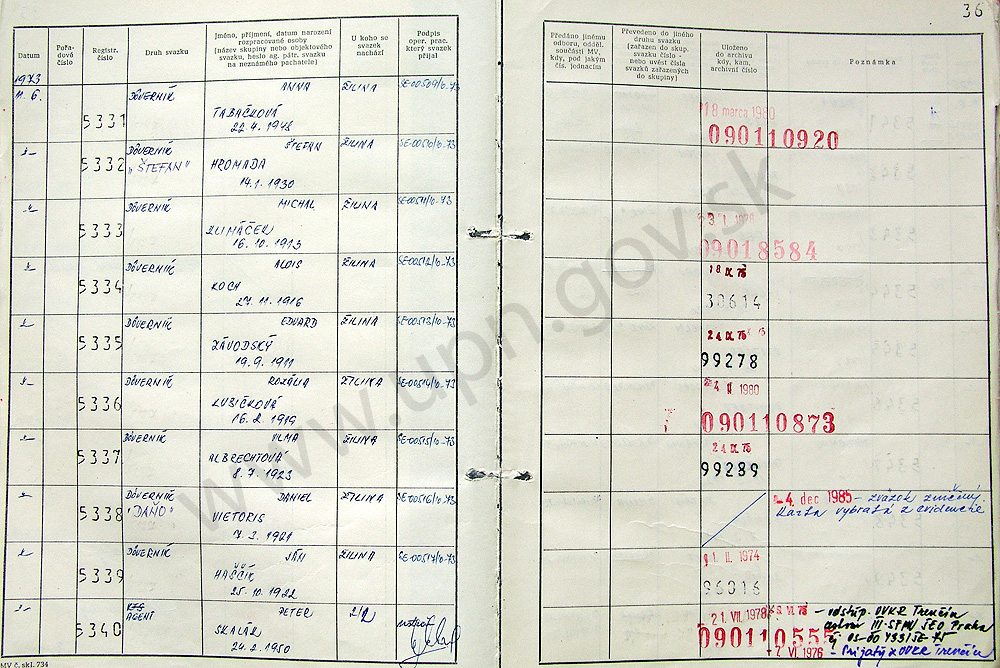 36
Datum
Pořadové číslo
Registr. číslo
Druh svazku
Jméno, příjmení, datum narození
rozpracované osoby
(název skupiny nebo objektového
svazku, heslo ag. pátr. svazku
na neznámého pachatele)
U koho se
svazek
nachází
Podpis
oper. prac.
který svazek
přijal
Předáno jinému
odboru, odděl.
součásti MV,
kdy, pod jakým
čís. jednacím
Převedeno do jiného
druhu svazku
(zařazen do skup.
svazku číslo -
nebo uvést čísla
svazků zařazených
do skupiny)
Uloženo
do archivu
kdy, kam,
archivní číslo
Poznámka
1973
11. 6.
5331
DÔVERNÍK
ANNA
TABAČKOVÁ
22. 4. 1948
ŽILINA
SE-00509/10-73
18 marca 1980
090110920
5332
DÔVERNÍK
"ŠTEFAN"
ŠTEFAN
HROMADA
14. 1. 1930
ŽILINA
SE-00510/10-73
5333
DÔVERNÍK
MICHAL
16. 10. 1913
ŽILINA
SE-00511/10-73
09018584
5334
DÔVERNÍK
ALOIS
KOCH
27. 11. 1916
ŽILINA
SE-00512/10-73
18 IX. 75
38614
5335
DÔVERNÍK
EDUARD
ZÁVODSKÝ
19. 9. 1911
ŽILINA
SE-00513/10-73
24 IX. 75
99278
5336
DÔVERNÍK
ROZÁLIA
KUBIČKOVÁ
16. 2. 1919
ŽILINA
SE-00514/10-73
1980
090110873
5337
DÔVERNÍK
VLMA
ALBRECHTOVÁ
8. 7. 1923
ŽILINA
SE-00515/10-73
24 IX. 75
99289
5338
DÔVERNÍK
"DAŇO"
DANIEL
VIETORIS
7. 3. 1921
ŽILINA
SE-00516/10-73
-4. dec 1985 - zväzok zničený.
Karta vybratá z evidencie
5339
DÔVERNÍK
JÁN
HAŠČÍK
25. 10. 1922
ŽILINA
SE-00517/10-73
1974
96016
5340
AGENT
PETER
SKALÁR
24. 2. 1950
21. VII. 1978
090110555
- odstúp. OVKR Trenčín
- 7 VI 1976 - Prijatý z OVKR Trenčín
MV č. skl. 734
www.upn.gov.sk